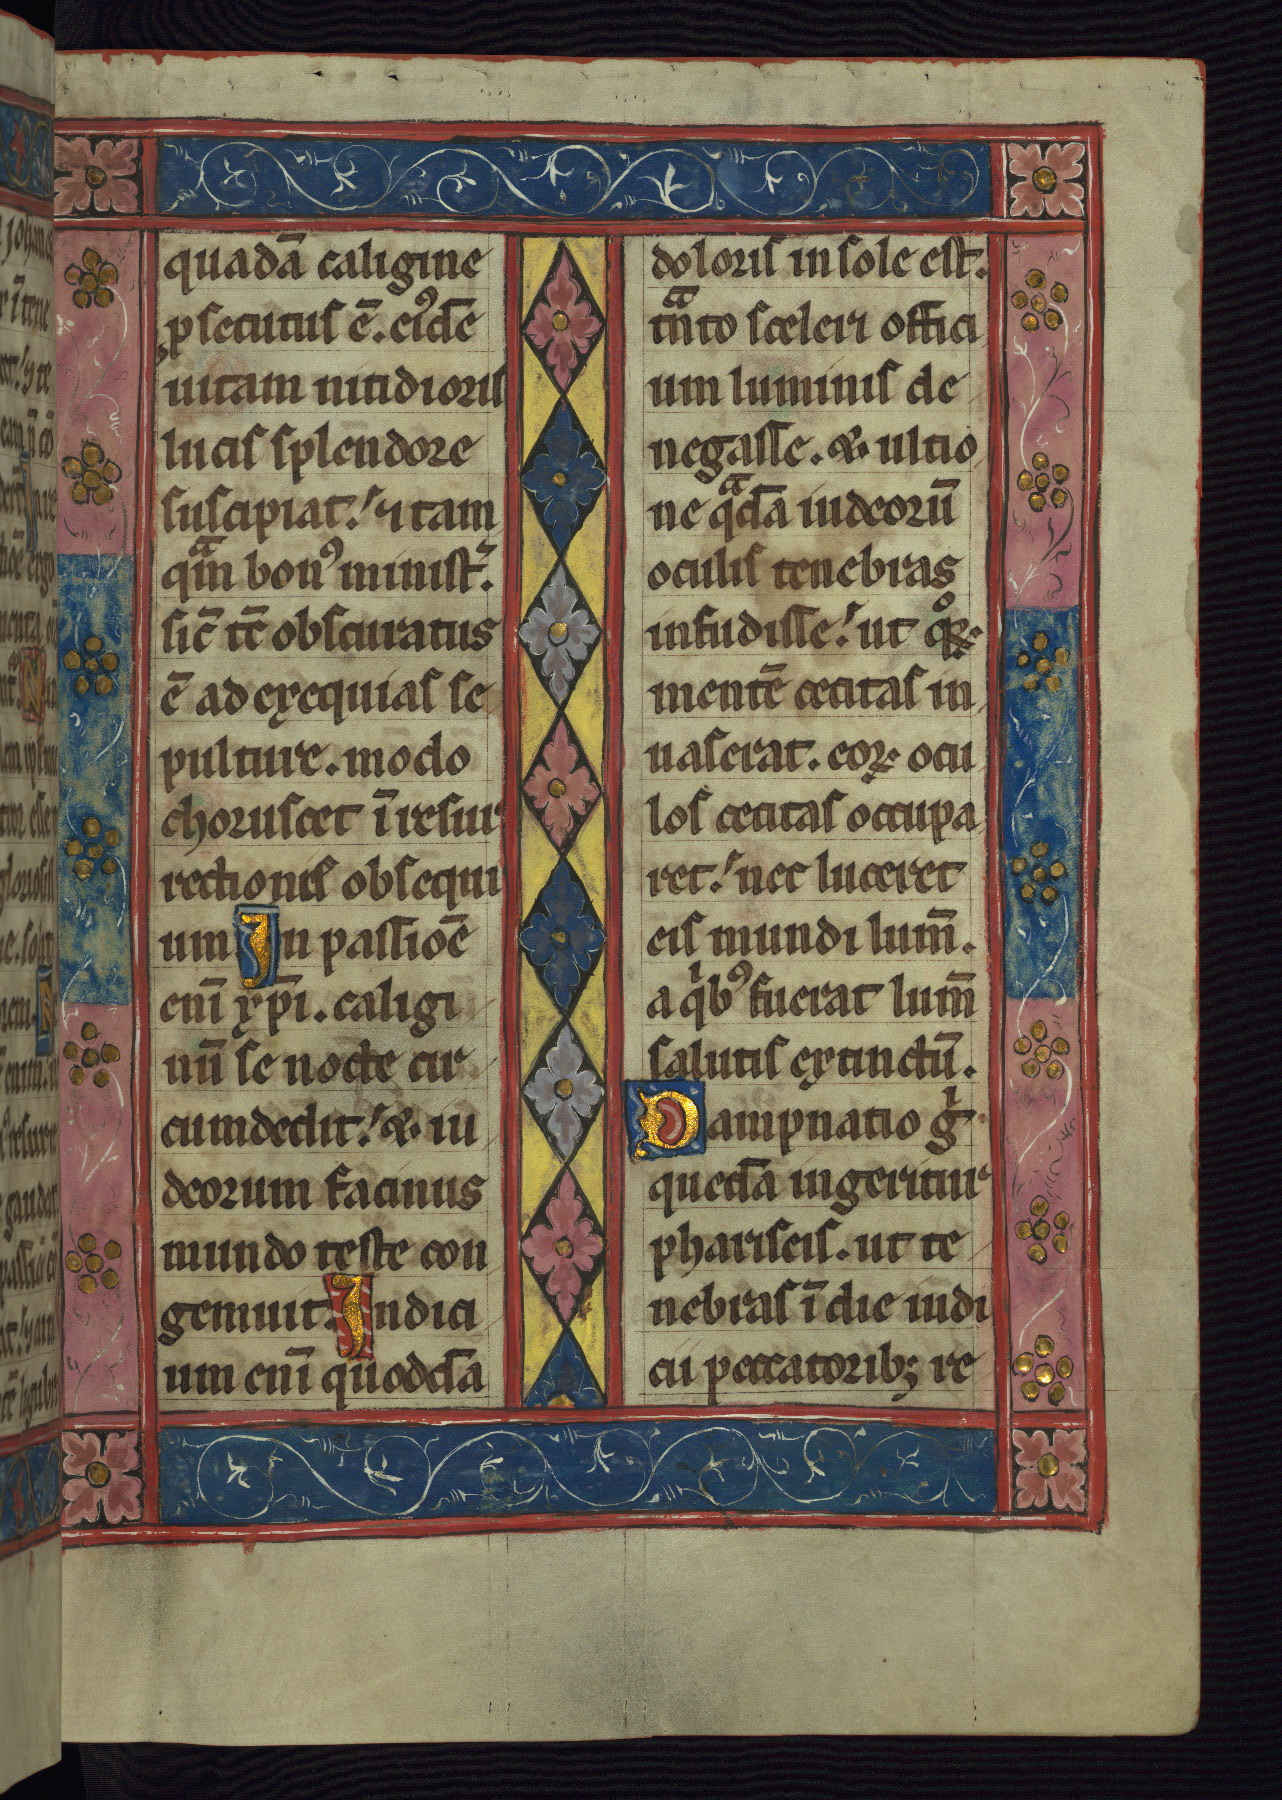 quadā caligine
ꝓsecutus ē. eiꝰdē
uitam nitidioris
lucis splendore
suscipiat.' ⁊ tam
qͣm bonꝰ minist᷑.
sic̄ tc̄ obscuratus
ē ad exequias se
pulture. modo
choruscet ī resur
rectionis obsequi
um In passioē
eni᷑ xp̄i. caligi
nū se nocte cir
cumdedit.' & iu
deorum facinus
mundo teste con
gemuit. Indici
um enī quoddā
doloris in sole est.
tn̄ͣto sceleri offici
um luminis de
negasse. & ultio
ne qͣdā iudeorū
oculis tenebras
infudisse.' ut qͦꝝ
mentē cecitas in
uaserat. eoꝝ ocu
los cecitas occupa
ret.' nec luceret
eis mundi lum̄.
a qⁱbꝰ fuerat lum̄
salutis extinctū.
Dampnatio gⁱ
quedā ingeritur
phariseis. ut te
nebras ī die iudi
cii peccatorib; re